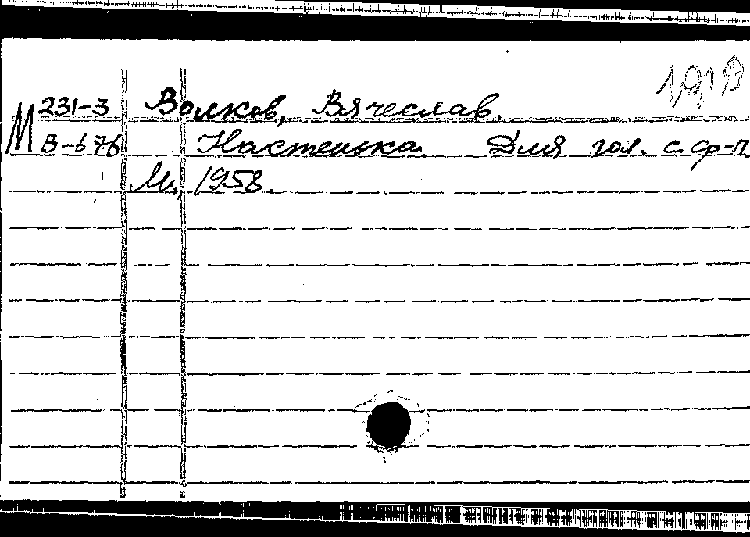 1919
М 231-3 Волков, Вячеслав.
В-676 Настенька. Для гол. с ф-п.
М., 1958.